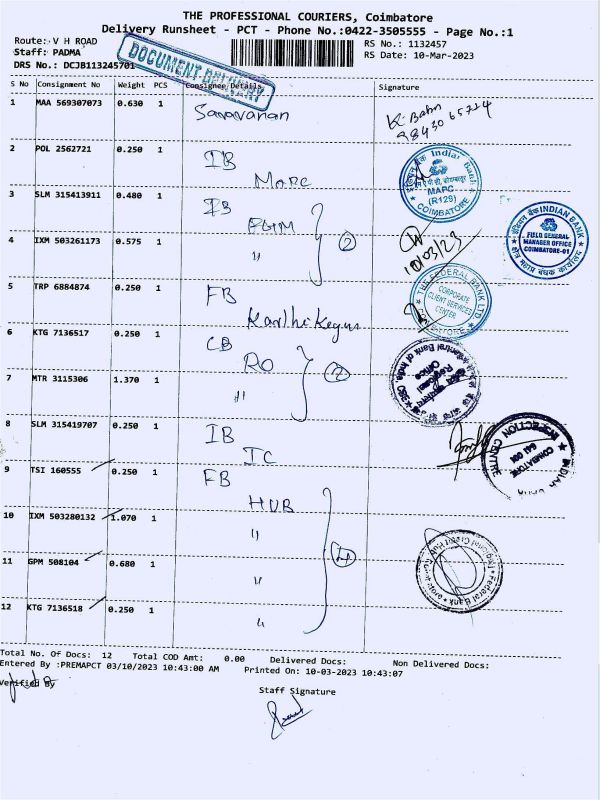 THE PROFESSIONAL COURIERS, Coimbatore
Delivery Runsheet - PCT - Phone No.:0422-3505555 - Page No.:1
Route: V H ROAD
RS No.: 1132457
Staff: PADMA
RS Date: 10-Mar-2023
DRS No.: DCJB113245701
DOCUMENT DELIVERY
S No Consignment No Weight PCS Consignee Details Signature
1 MAA 569307073 0.630 1 Saravanan
K. Babu
98430 65774
2 POL 2562721 0.250 1 IB
MAPC
Indian Bank
MAPC
(R129)
COIMBATORE
3 SLM 315413911 0.480 1 IB
FGM
2
INDIAN BANK
FIELD GENERAL
MANAGER OFFICE
COIMBATORE-01
4 IXM 503261173 0.575 1 "
10/03/23
5 TRP 6884874 0.250 1 FB
Karthikeyan
THE FEDERAL BANK LTD
CORPORATE
CLIENT SERVICES
CENTER
6 KTG 7136517 0.250 1 CB
RO
2
Central Bank of India
Regional
Office
7 MTR 3115306 1.370 1 "
8 SLM 315419707 0.250 1 IB
IC
INDIAN BANK
INSPECTION CENTRE
COIMBATORE
641 001
9 TSI 160555 0.250 1 FB
HUB
4
10 IXM 503280132 1.070 1 "
11 GPM 508104 0.680 1 "
Federal Bank
Regional Credit Hub
12 KTG 7136518 0.250 1 "
Total No. Of Docs: 12 Total COD Amt: 0.00 Delivered Docs: Non Delivered Docs:
Entered By :PREMAPCT 03/10/2023 10:43:00 AM Printed On: 10-03-2023 10:43:07
Verified By
Staff Signature